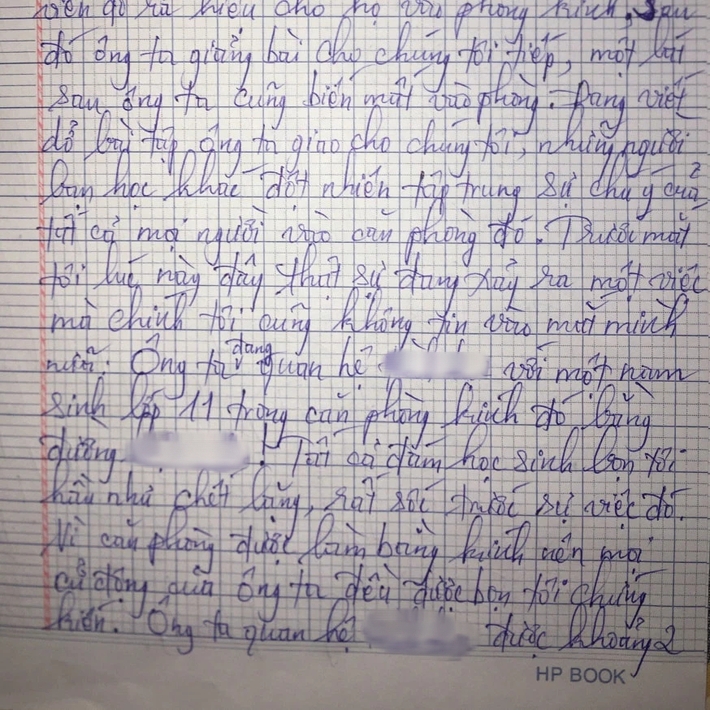 viên gì ra hiệu cho họ vào phòng kính. Sau
đó ông ta giảng bài cho chúng tôi tiếp, một lát
sau ông ta cũng biến mất vào phòng. Đang viết
dở bài tập ông ta giao cho chúng tôi, những người
bạn học khác đột nhiên tập trung sự chú ý của
tất cả mọi người vào căn phòng đó. Trước mắt
tôi lúc này đây thật sự đang xảy ra một việc
mà chính tôi cũng không tin vào mắt mình
nữa. Ông ta đang quan hệ với một nam
sinh lớp 11 trong căn phòng kính đó bằng
đường ! Tất cả đám học sinh bọn tôi
hầu như chết lặng, rất sốc trước sự việc đó.
Vì căn phòng được làm bằng kính nên mọi
cử động của ông ta đều được bọn tôi chứng
kiến. Ông ta quan hệ được khoảng 2
HP BOOK